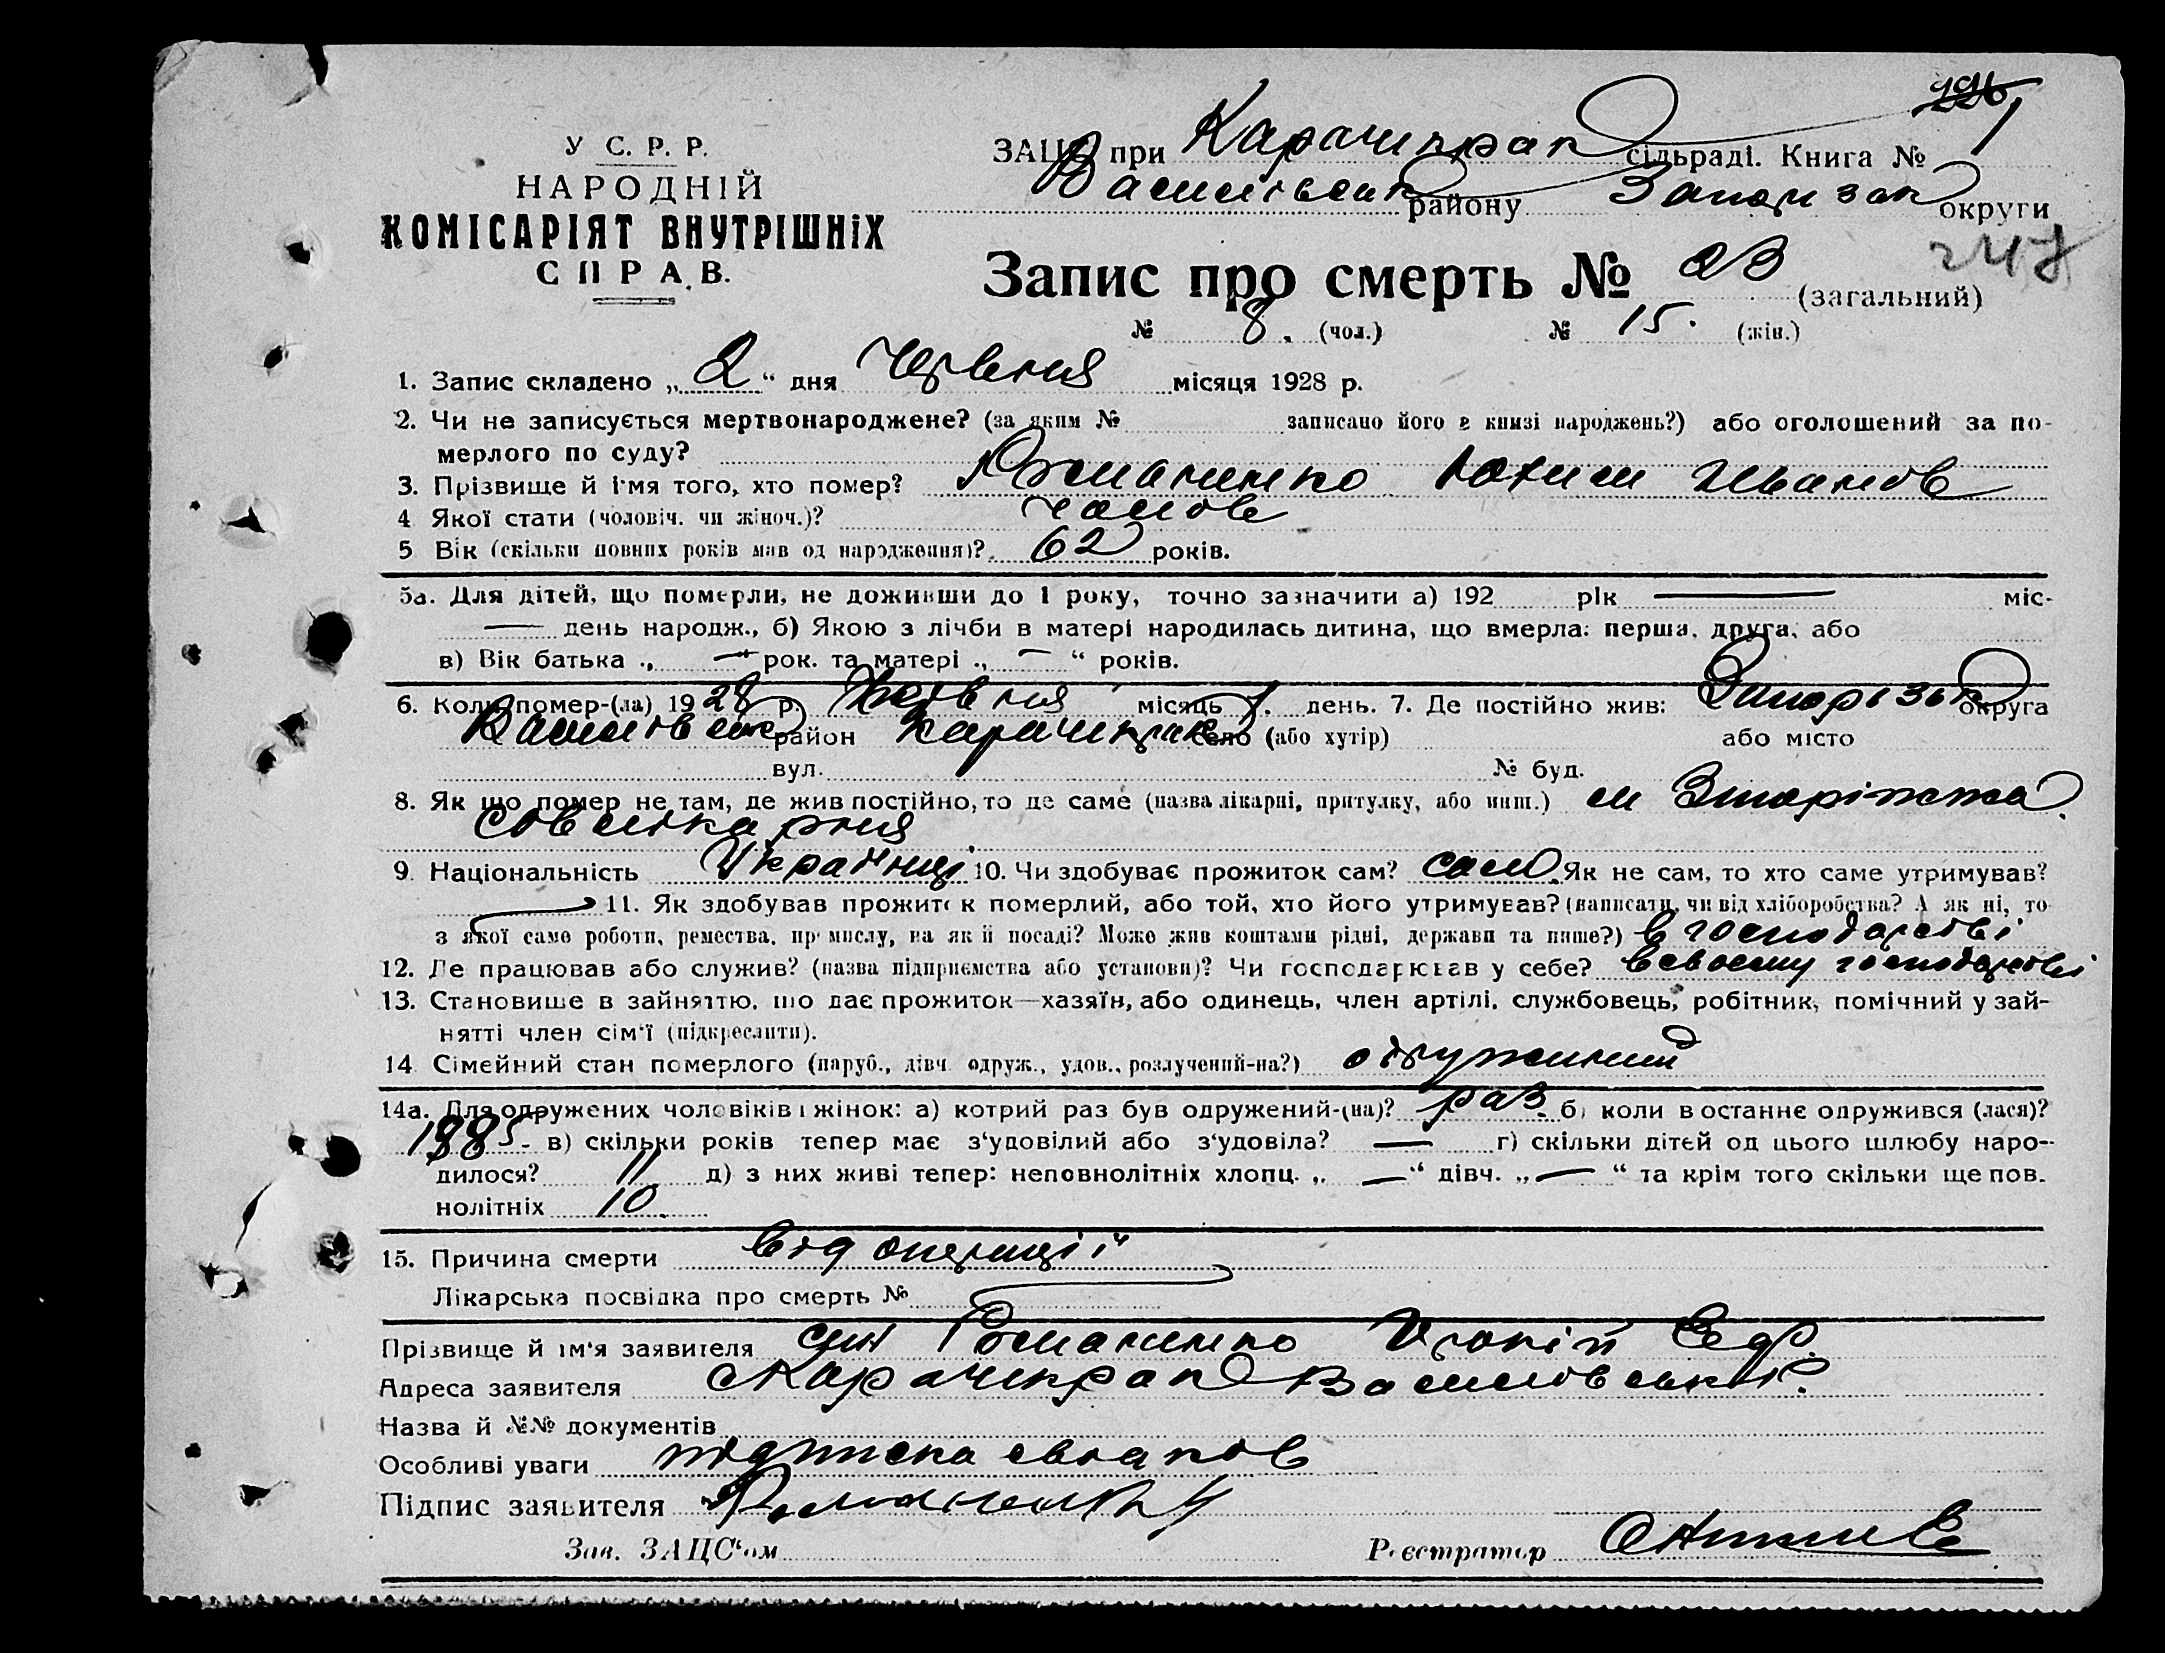 У С. Р. Р.
НАРОДНІЙ
КОМІСАРІЯТ ВНУТРІШНІХ
СПРАВ.
ЗАЦС при Карачикрак сільраді. Книга № 1
Василівськ району Запоризьк округи
247
Запис про смерть № 23 (загальний)
№ 8. (чол.) № 15. (жін.)
1. Запис складено „ 2 “ дня Червня місяця 1928 р.
2. Чи не записується мертвонароджене? (за яким № записано його в книзі народжень?) або оголошений за по-
мерлого по суду?
3. Прізвище й ім'я того, хто помер? Романенко Юхим Иванов
4 Якої стати (чоловіч. чи жіноч.)? чолов
5 Вік (скільки повних років мав од народження)? 62 років.
5а. Для дітей, що померли, не доживши до 1 року, точно зазначити а) 192 рік — міс-
— день народж., б) Якою з лічби в матері народилась дитина, що вмерла: перша, друга, або
в) Вік батька „ — “ рок. та матері „ — “ років.
6. Коли помер-(ла) 1928 р. Червня місяць 1. день. 7. Де постійно жив: Запорізьк округа
Василівськ район Карачикрак село (або хутір) або місто
вул. № буд.
8. Як що помер не там, де жив постійно, то де саме (назва лікарні, притулку, або инш.) м Запоріжжа
Совлікарня
9. Національність Українці 10. Чи здобуває прожиток сам? сам. Як не сам, то хто саме утримував?
— 11. Як здобував прожиток померлий, або той, хто його утримував? (написати, чи від хліборобства? А як ні, то
з якої саме роботи, ремества, промислу, на якій посаді? Може жив коштами рідні, держави та инше?) в господарстві
12. Де працював або служив? (назва підприємства або установи)? Чи господарював у себе? в своєму господарстві
13. Становище в зайняттю, що дає прожиток—хазяїн, або одинець, член артілі, службовець, робітник, помічний у зай-
нятті член сім'ї (підкреслити).
14. Сімейний стан померлого (паруб., дівч. одруж., удов., розлучений-на?) одружений
14а. Для одружених чоловіків і жінок: а) котрий раз був одружений-(на)? раз. б) коли в останнє одружився (лася)?
1885 - в) скільки років тепер має з'удовілий або з'удовіла? — г) скільки дітей од цього шлюбу наро-
дилося? 11 д) з них живі тепер: неповнолітніх хлопц. „ — “ дівч. „ — “ та крім того скільки ще пов.
нолітніх 10.
15. Причина смерти від операції
Лікарська посвідка про смерть №
Прізвище й ім'я заявителя син Романенко
Адреса заявителя с Карачикрак Василівськ Р.
Назва й №№ документів
Особливі уваги підписка свідків
Підпис заявителя Романенко
Зав. ЗАЦС'ом Реєстратор